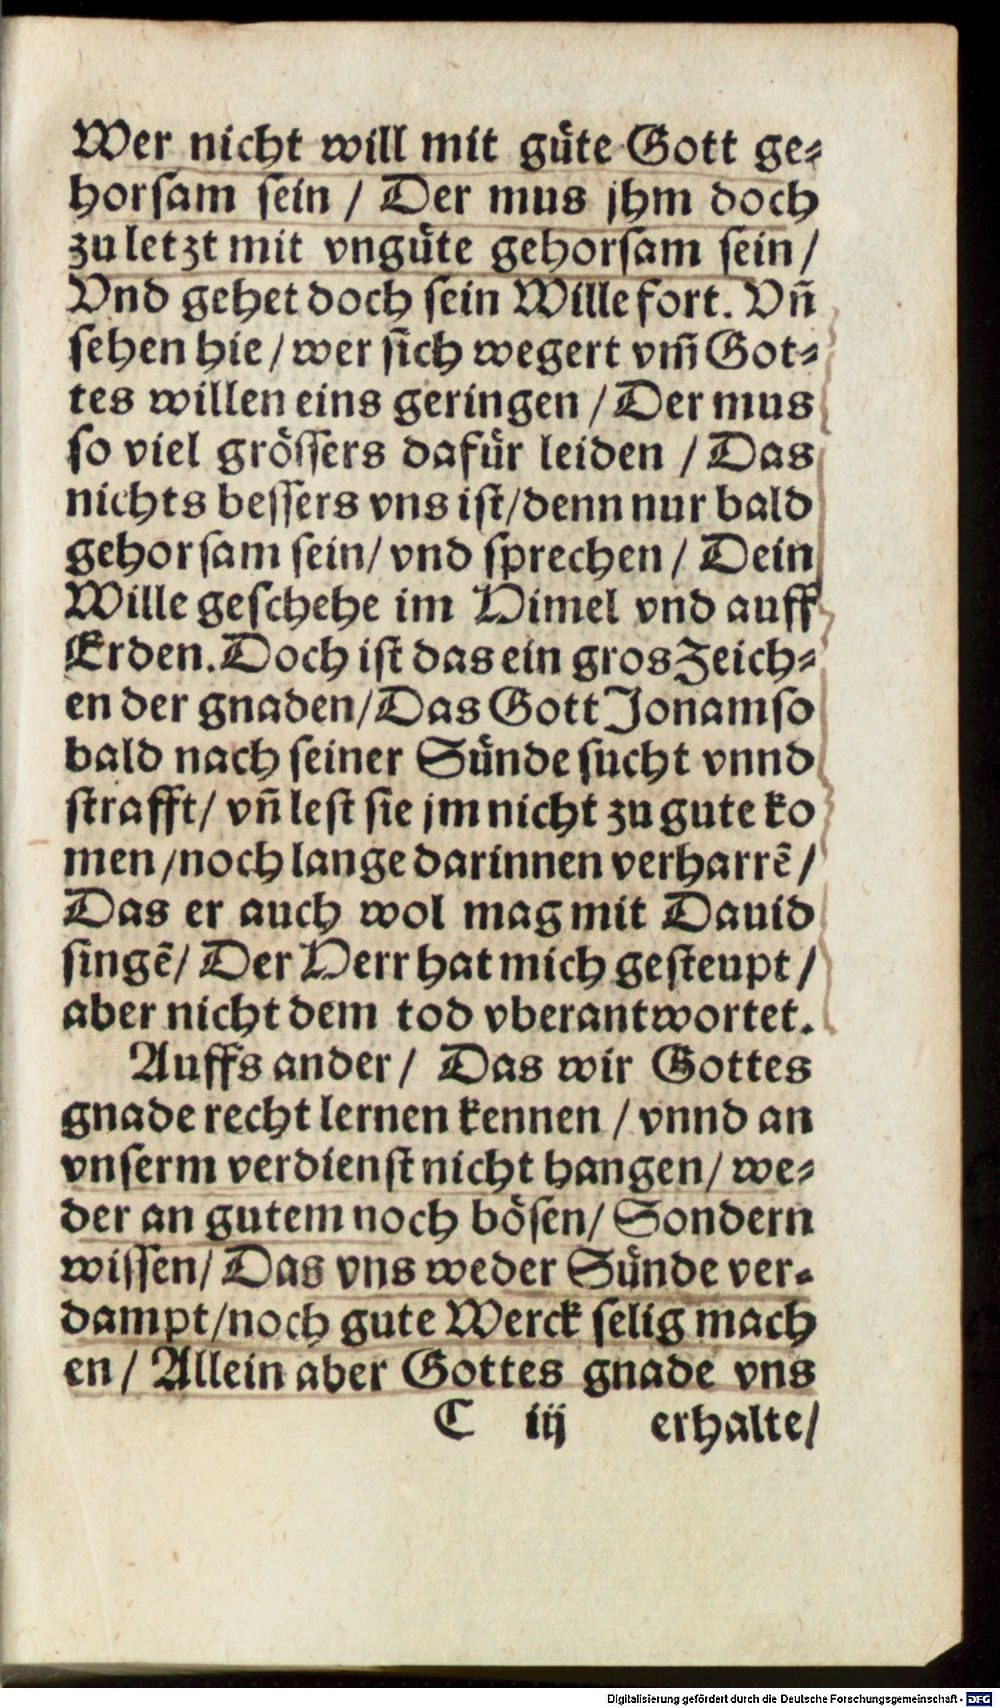 Wer nicht will mit güte Gott ge⸗
horsam sein / Der mus jhm doch
zu letzt mit vngüte gehorsam sein /
Vnd gehet doch sein Wille fort. Vñ
sehen hie / wer sich wegert vm̃ Got⸗
tes willen eins geringen / Der mus
so viel grössers dafür leiden / Das
nichts bessers vns ist / denn nur bald
gehorsam sein / vnd sprechen / Dein
Wille geschehe im Himel vnd auff
Erden. Doch ist das ein gros Zeich⸗
en der gnaden / Das Gott Jonam so
bald nach seiner Sünde sucht vnnd
strafft / vñ lest sie jm nicht zu gute ko
men / noch lange darinnen verharrẽ /
Das er auch wol mag mit Dauid
singẽ / Der Herr hat mich gesteupt /
aber nicht dem tod vberantwortet.
Auffs ander / Das wir Gottes
gnade recht lernen kennen / vnnd an
vnserm verdienst nicht hangen / we⸗
der an gutem noch bösen / Sondern
wissen / Das vns weder Sünde ver⸗
dampt / noch gute Werck selig mach
en / Allein aber Gottes gnade vns
C iij erhalte /
Digitalisierung gefördert durch die Deutsche Forschungsgemeinschaft - DFG